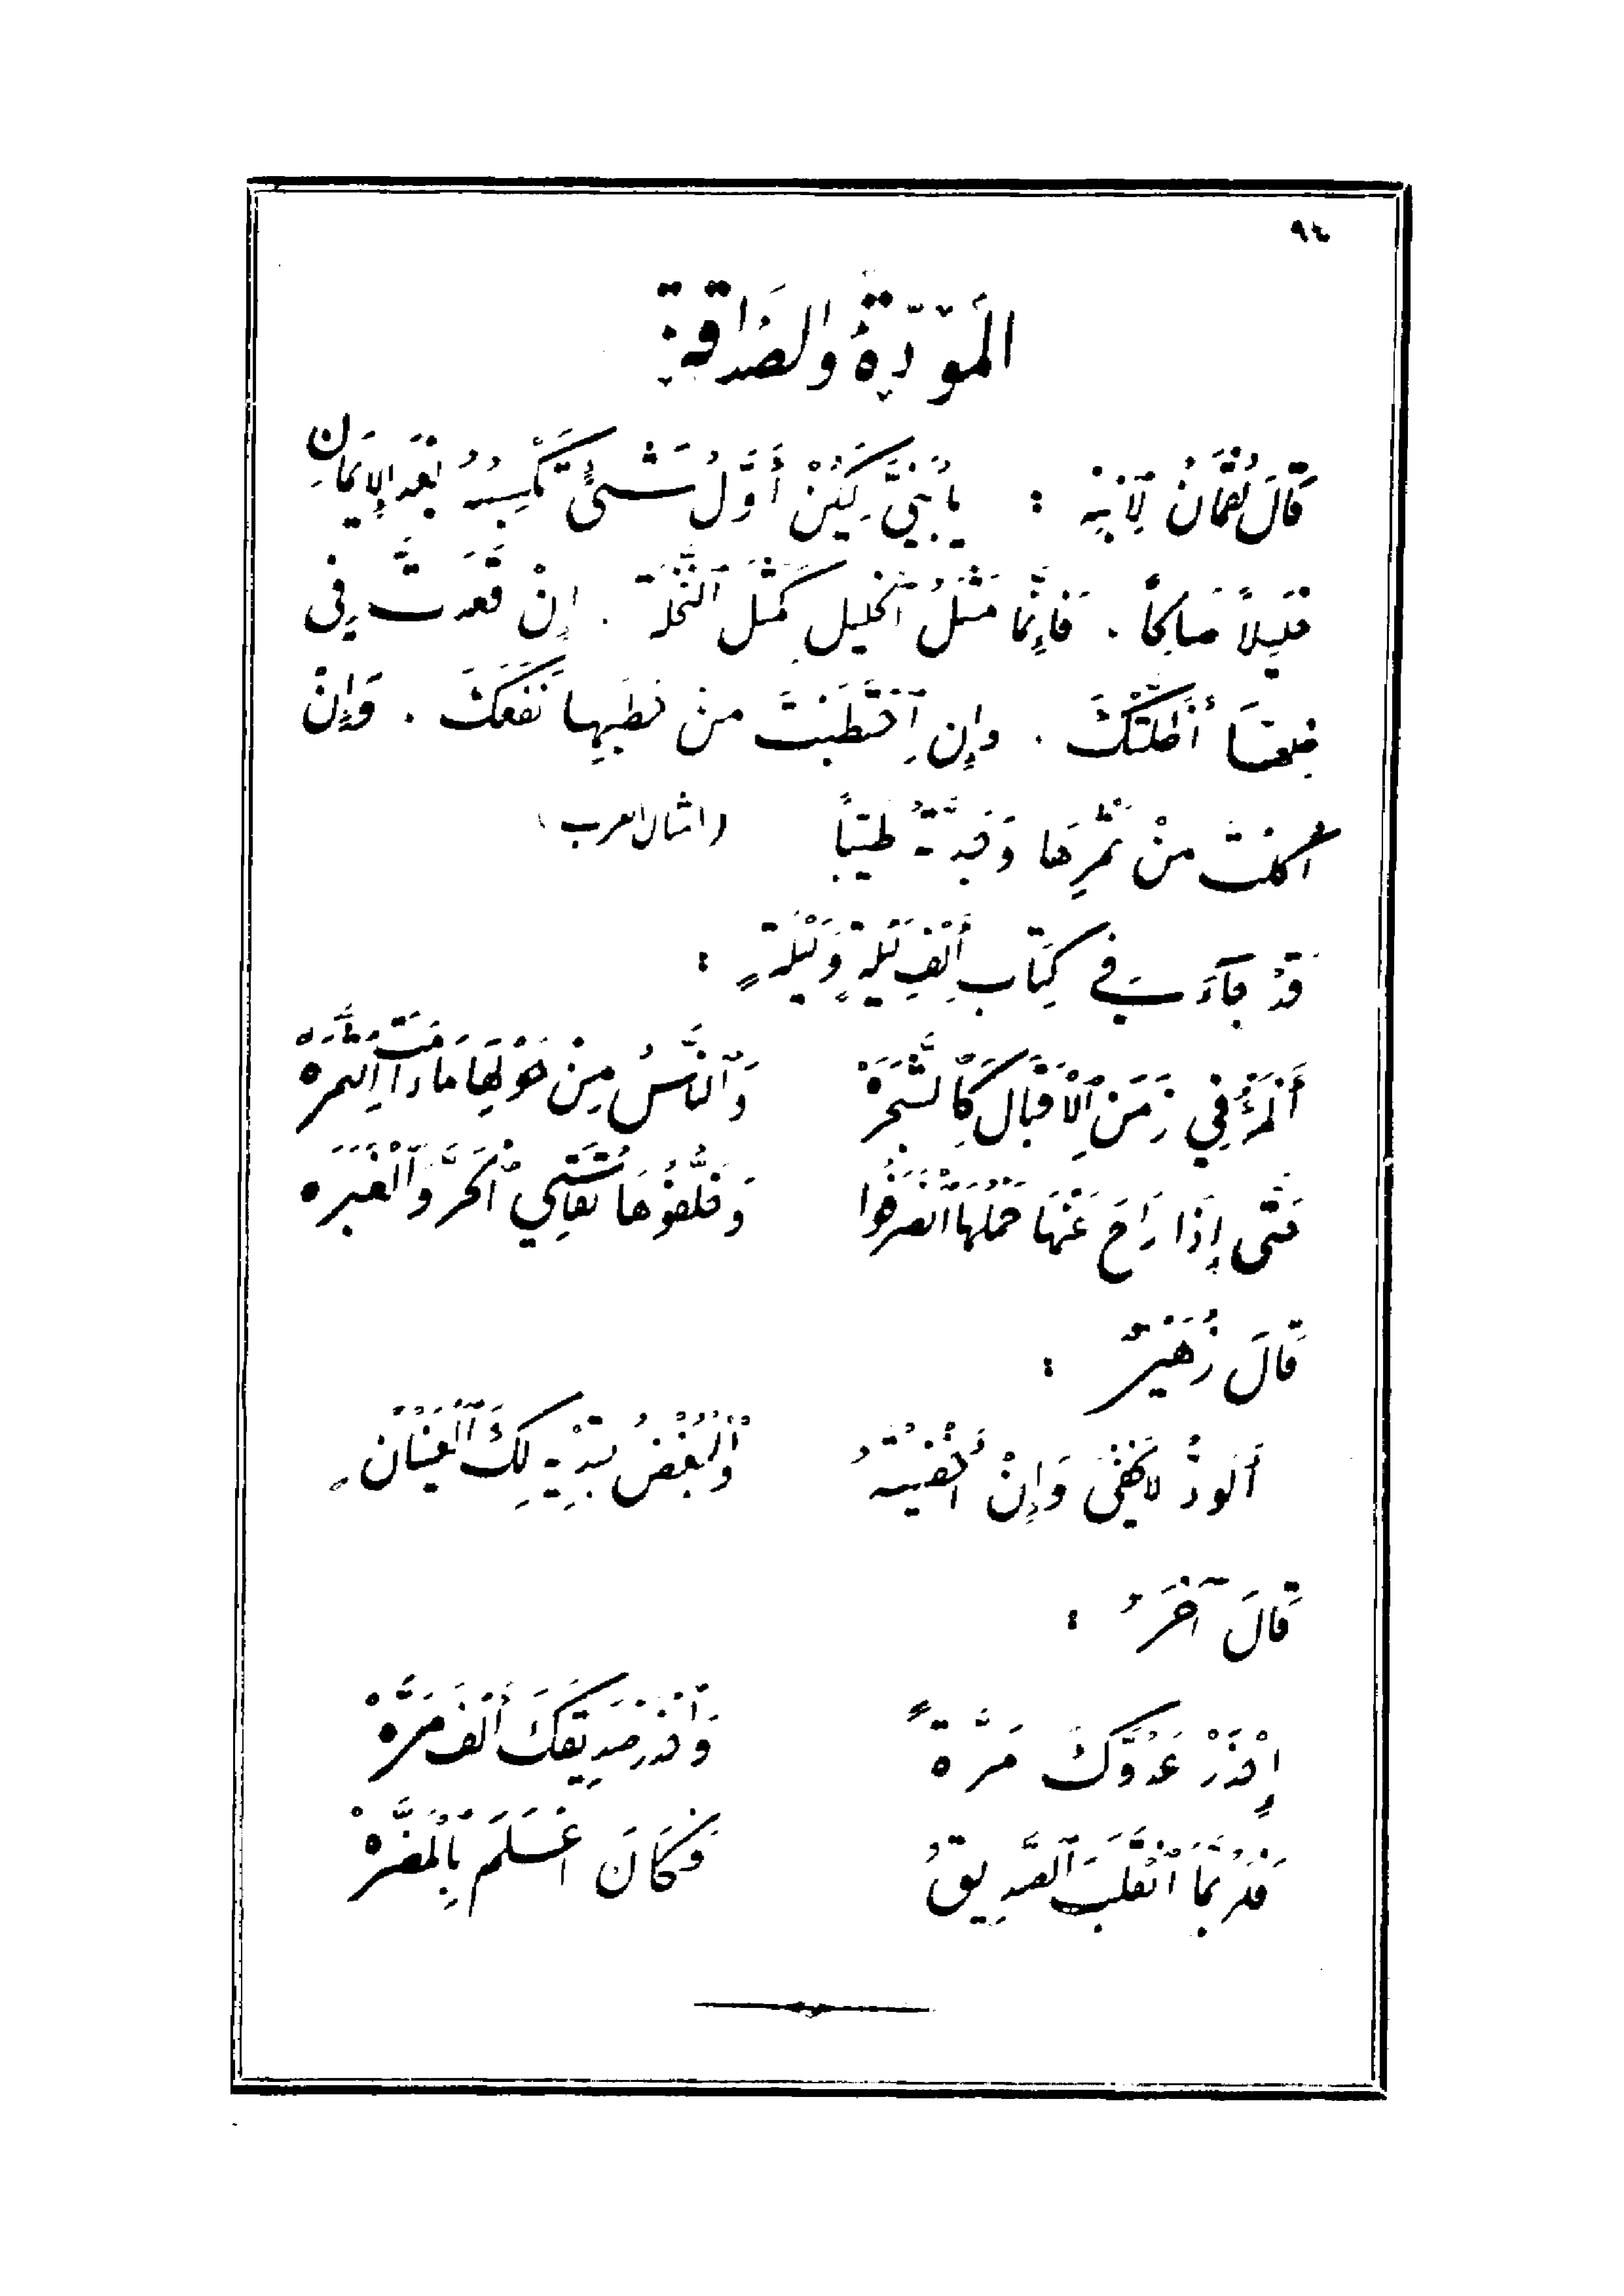 ٩٤
المَوَدَّةُ والصَدَاقة
قَالَ لُقْمَانُ لِآبْنِهِ : يَا بُنَيَّ لِيَكُنْ أَوَّلُ شَىْءٍ تَكْسِبُهُ بَعْدَ الإِيمَانِ
خَلِيلاً صَالِحاً . فَإِنَّمَا مَثَلُ ٱلْخَلِيلِ كَمَثَلِ ٱلنَّخْلَةِ . إِنْ قَعَدتَّ فِى
ظِلِّهَا أَظَلَّتْكَ . وَإِنِ ٱحْتَطَبْتَ مِنْ حَطَبِهَا نَفَعَكَ . وَإِنْ
أَكَلْتَ مِنْ ثَمَرِهَا وَجَدتَّهُ طَيِّباً (امثال العرب)
قَدْ جَآءَ فِي كِتَابِ أَلْفِ لَيْلَةٍ وَلَيْلَةٍ :
أَلْمَرْءُ فِي زَمَنِ ٱلْاِقْبَالِ كَٱلشَّجَرَهْ وَٱلنَّاسُ مِنْ حَوْلِهَا مَا دَامَتِ ٱلثَّمَرَهْ
حَتَّى إِذَا رَاحَ عَنْهَا حَمْلُهَا ٱنْصَرَفُوا وَخَلَّفُوهَا تُقَاسِي ٱلْحَرَّ وَٱلْغَبَرَه
قَالَ زُهَيْرٌ :
أَلوُدُّ لاَ يَخْفَى وَإِنْ أَخْفَيْتَهُ وَٱلْبُغْضُ تُبْدِيهِ لَكَ ٱلْعَيْنَانِ
قَالَ آخَرُ :
إِحْذَرْ عَدُوَّكَ مَرَّةً وَٱحْذَرْ صَدِيقَكَ أَلْفَ مَرَّهْ
فَلَرُبَّمَا ٱنْقَلَبَ ٱلصَّدِيقُ فَكَانَ اعْلَمَ بِٱلْمَضَرَّهْ